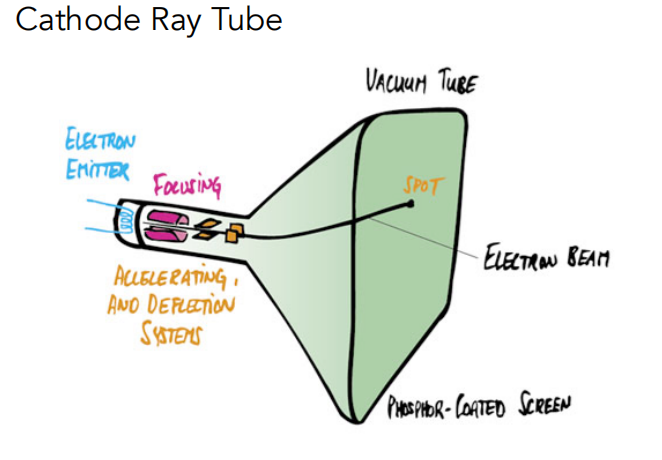 Cathode Ray Tube
VACUUM TUBE
ELECTRON
EMITTER
FOCUSING
SPOT
ELECTRON BEAM
ACCELERATING,
AND DEFLECTION
SYSTEMS
PHOSPHOR-COATED SCREEN